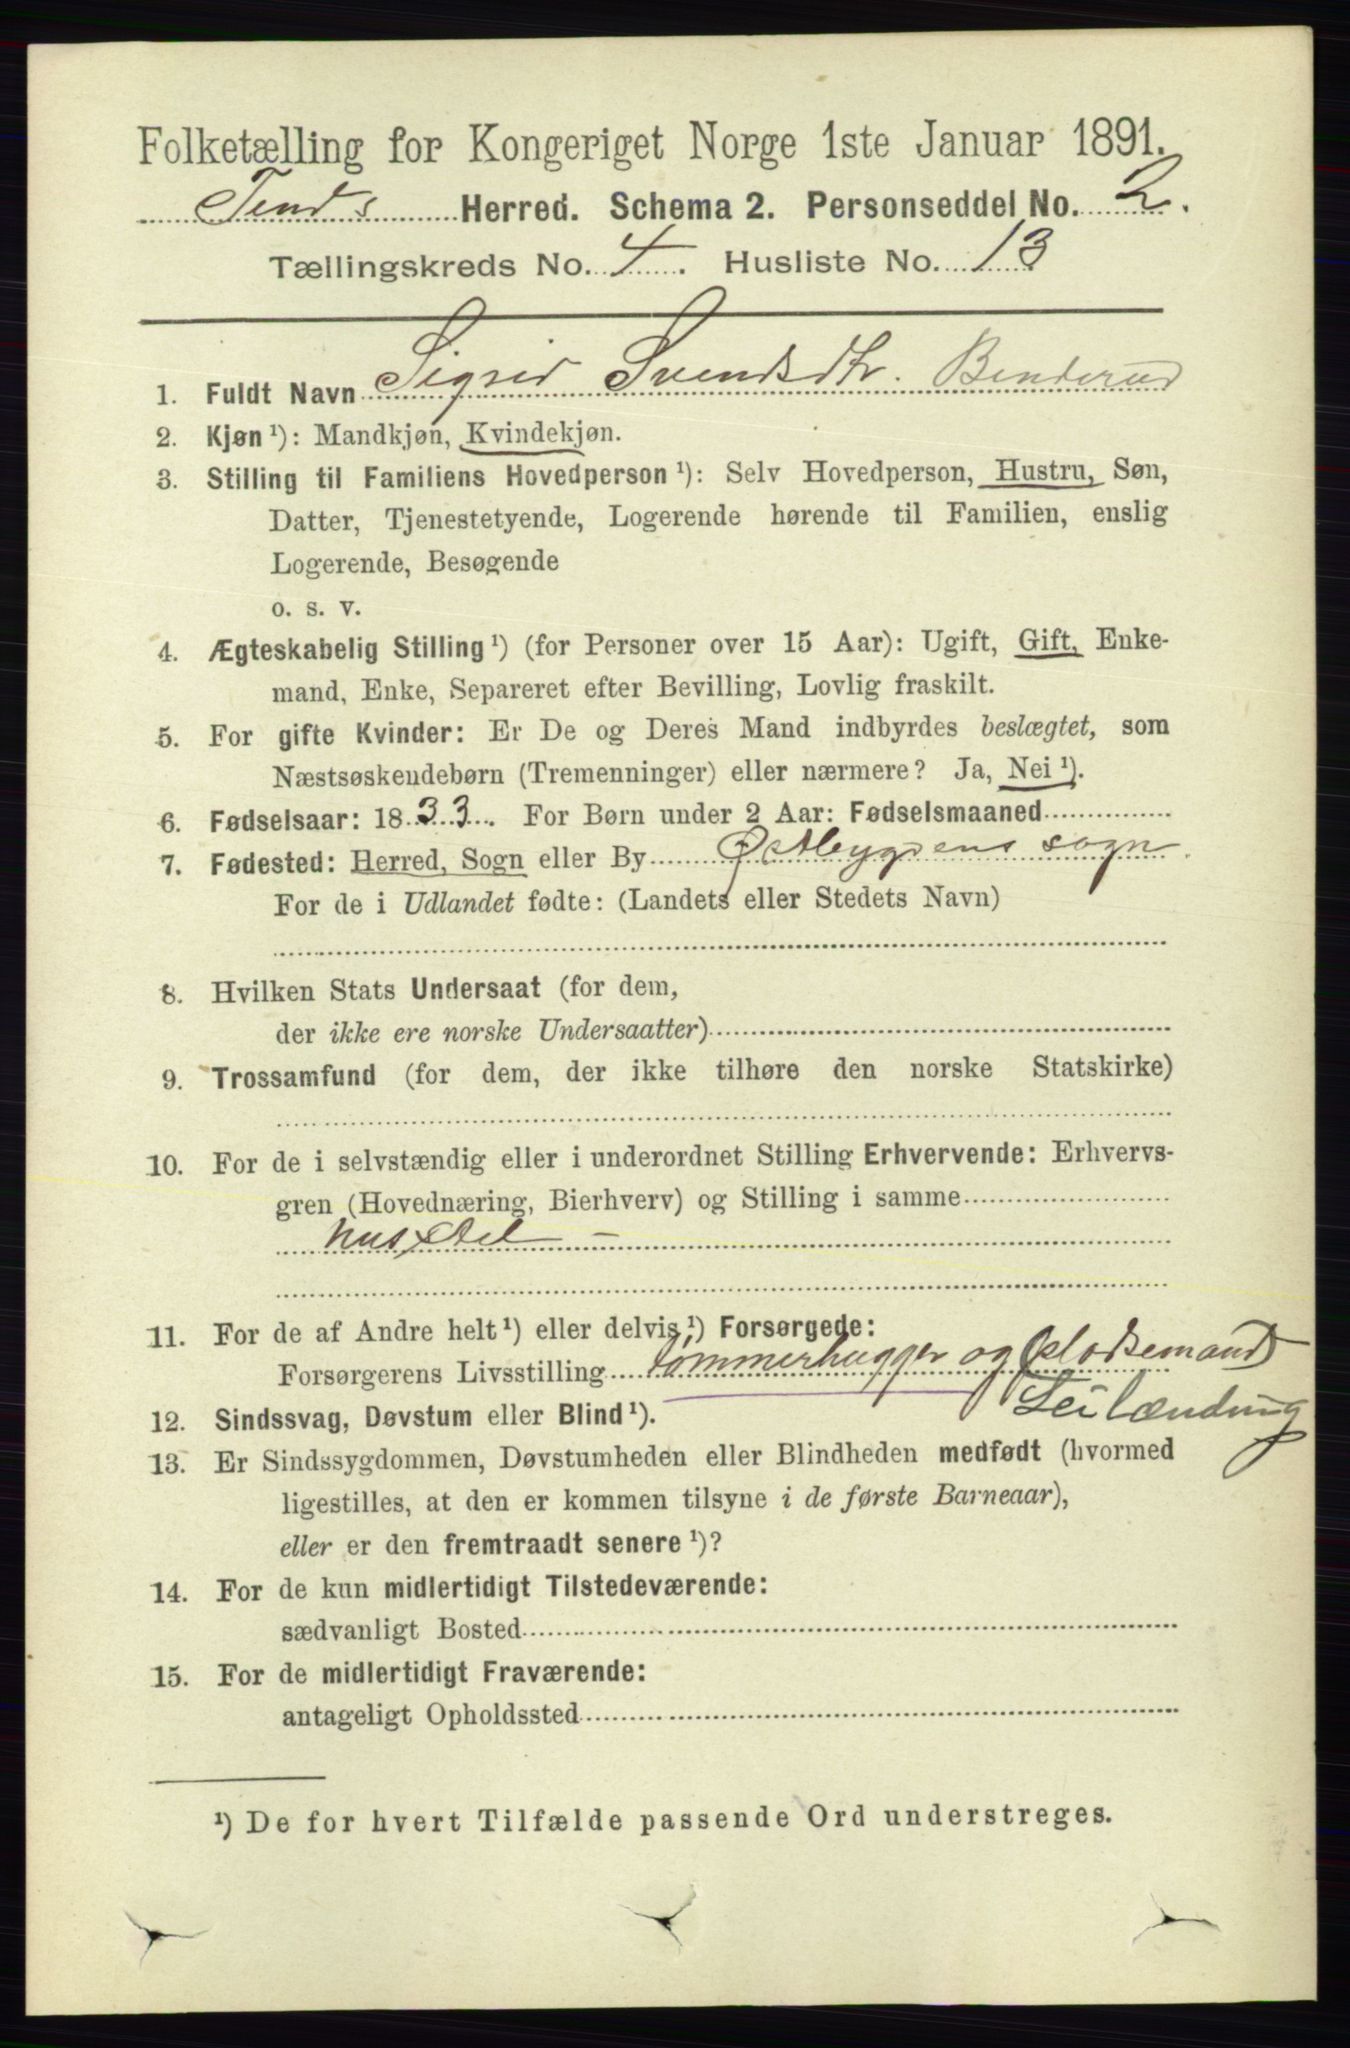 Folketælling for Kongeriget Norge 1ste Januar 1891.
Tinds Herred. Schema 2. Personseddel No. 2.
Tællingskreds No. 4. Husliste No. 13
1. Fuldt Navn Sigrid Svendsdtr. Benterud
2. Kjøn ¹): Mandkjøn, Kvindekjøn.
3. Stilling til Familiens Hovedperson ¹): Selv Hovedperson, Hustru, Søn,
Datter, Tjenestetyende, Logerende hørende til Familien, enslig
Logerende, Besøgende
o. s. v.
4. Ægteskabelig Stilling ¹) (for Personer over 15 Aar): Ugift, Gift, Enke-
mand, Enke, Separeret efter Bevilling, Lovlig fraskilt.
5. For gifte Kvinder: Er De og Deres Mand indbyrdes beslægtet, som
Næstsøskendebørn (Tremenninger) eller nærmere? Ja, Nei ¹).
6. Fødselsaar: 1833. For Børn under 2 Aar: Fødselsmaaned
7. Fødested: Herred, Sogn eller By Østbygdens sogn.
For de i Udlandet fødte: (Landets eller Stedets Navn)
8. Hvilken Stats Undersaat (for dem,
der ikke ere norske Undersaatter)
9. Trossamfund (for dem, der ikke tilhøre den norske Statskirke)
10. For de i selvstændig eller i underordnet Stilling Erhvervende: Erhvervs-
gren (Hovednæring, Bierhverv) og Stilling i samme
husstel –
11. For de af Andre helt ¹) eller delvis ¹) Forsørgede:
Forsørgerens Livsstilling tømmerhugger og pladsemand
Leilænding
12. Sindssvag, Døvstum eller Blind ¹).
13. Er Sindssygdommen, Døvstumheden eller Blindheden medfødt (hvormed
ligestilles, at den er kommen tilsyne i de første Barneaar),
eller er den fremtraadt senere ¹)?
14. For de kun midlertidigt Tilstedeværende:
sædvanligt Bosted
15. For de midlertidigt Fraværende:
antageligt Opholdssted
¹) De for hvert Tilfælde passende Ord understreges.